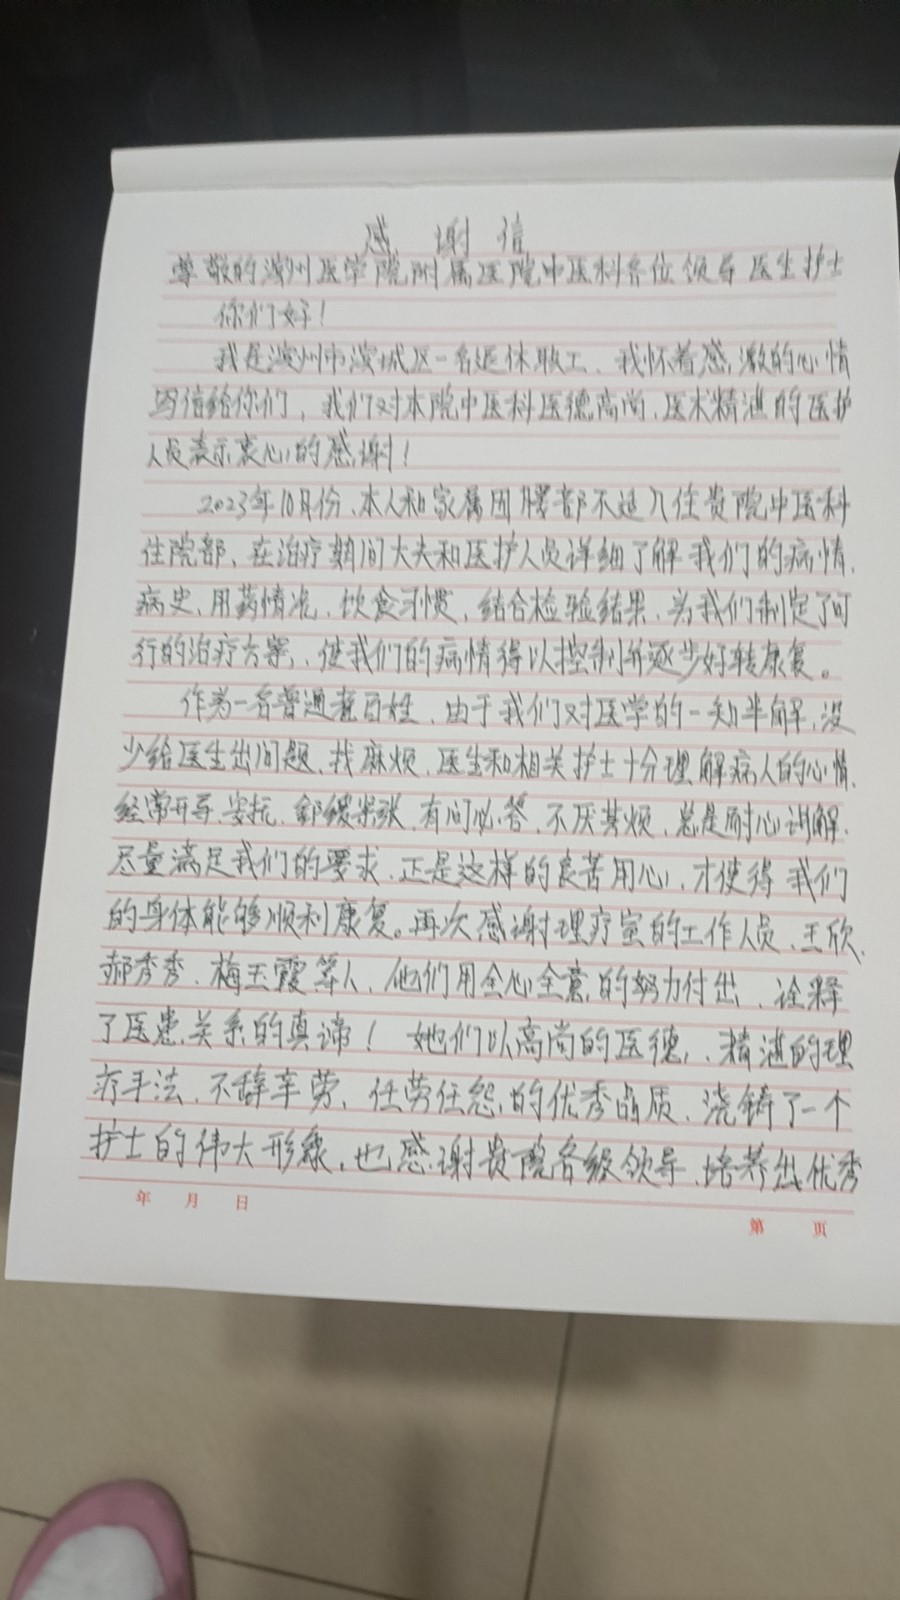 感谢信
尊敬的滨州医学院附属医院中医科各位领导医生护士
你们好！
我是滨州市滨城区一名退休职工、我怀着感激的心情
写信给你们，我们对本院中医科医德高尚、医术精湛的医护
人员表示衷心的感谢！
2023年10月份、本人和家属因腰部不适入住贵院中医科
住院部、在治疗期间大夫和医护人员详细了解我们的病情、
病史、用药情况、饮食习惯、结合检验结果、为我们制定了可
行的治疗方案、使我们的病情得以控制并逐步好转康复。
作为一名普通老百姓、由于我们对医学的一知半解，没
少给医生出问题、找麻烦、医生和相关护士十分理解病人的心情、
经常开导、安抚、紧张、有问必答、不厌其烦、总是耐心讲解、
尽量满足我们的要求、正是这样的良苦用心、才使得我们
的身体能够顺利康复。再次感谢理疗室的工作人员、王欣、
郝秀秀、梅玉霞等人、他们用全心全意的努力付出、诠释
了医患关系的真谛！她们以高尚的医德、精湛的理
疗手法、不辞辛劳、任劳任怨的优秀品质、浇铸了一个
护士的伟大形象、也感谢贵院各级领导、培养出优秀
年 月 日
第 页